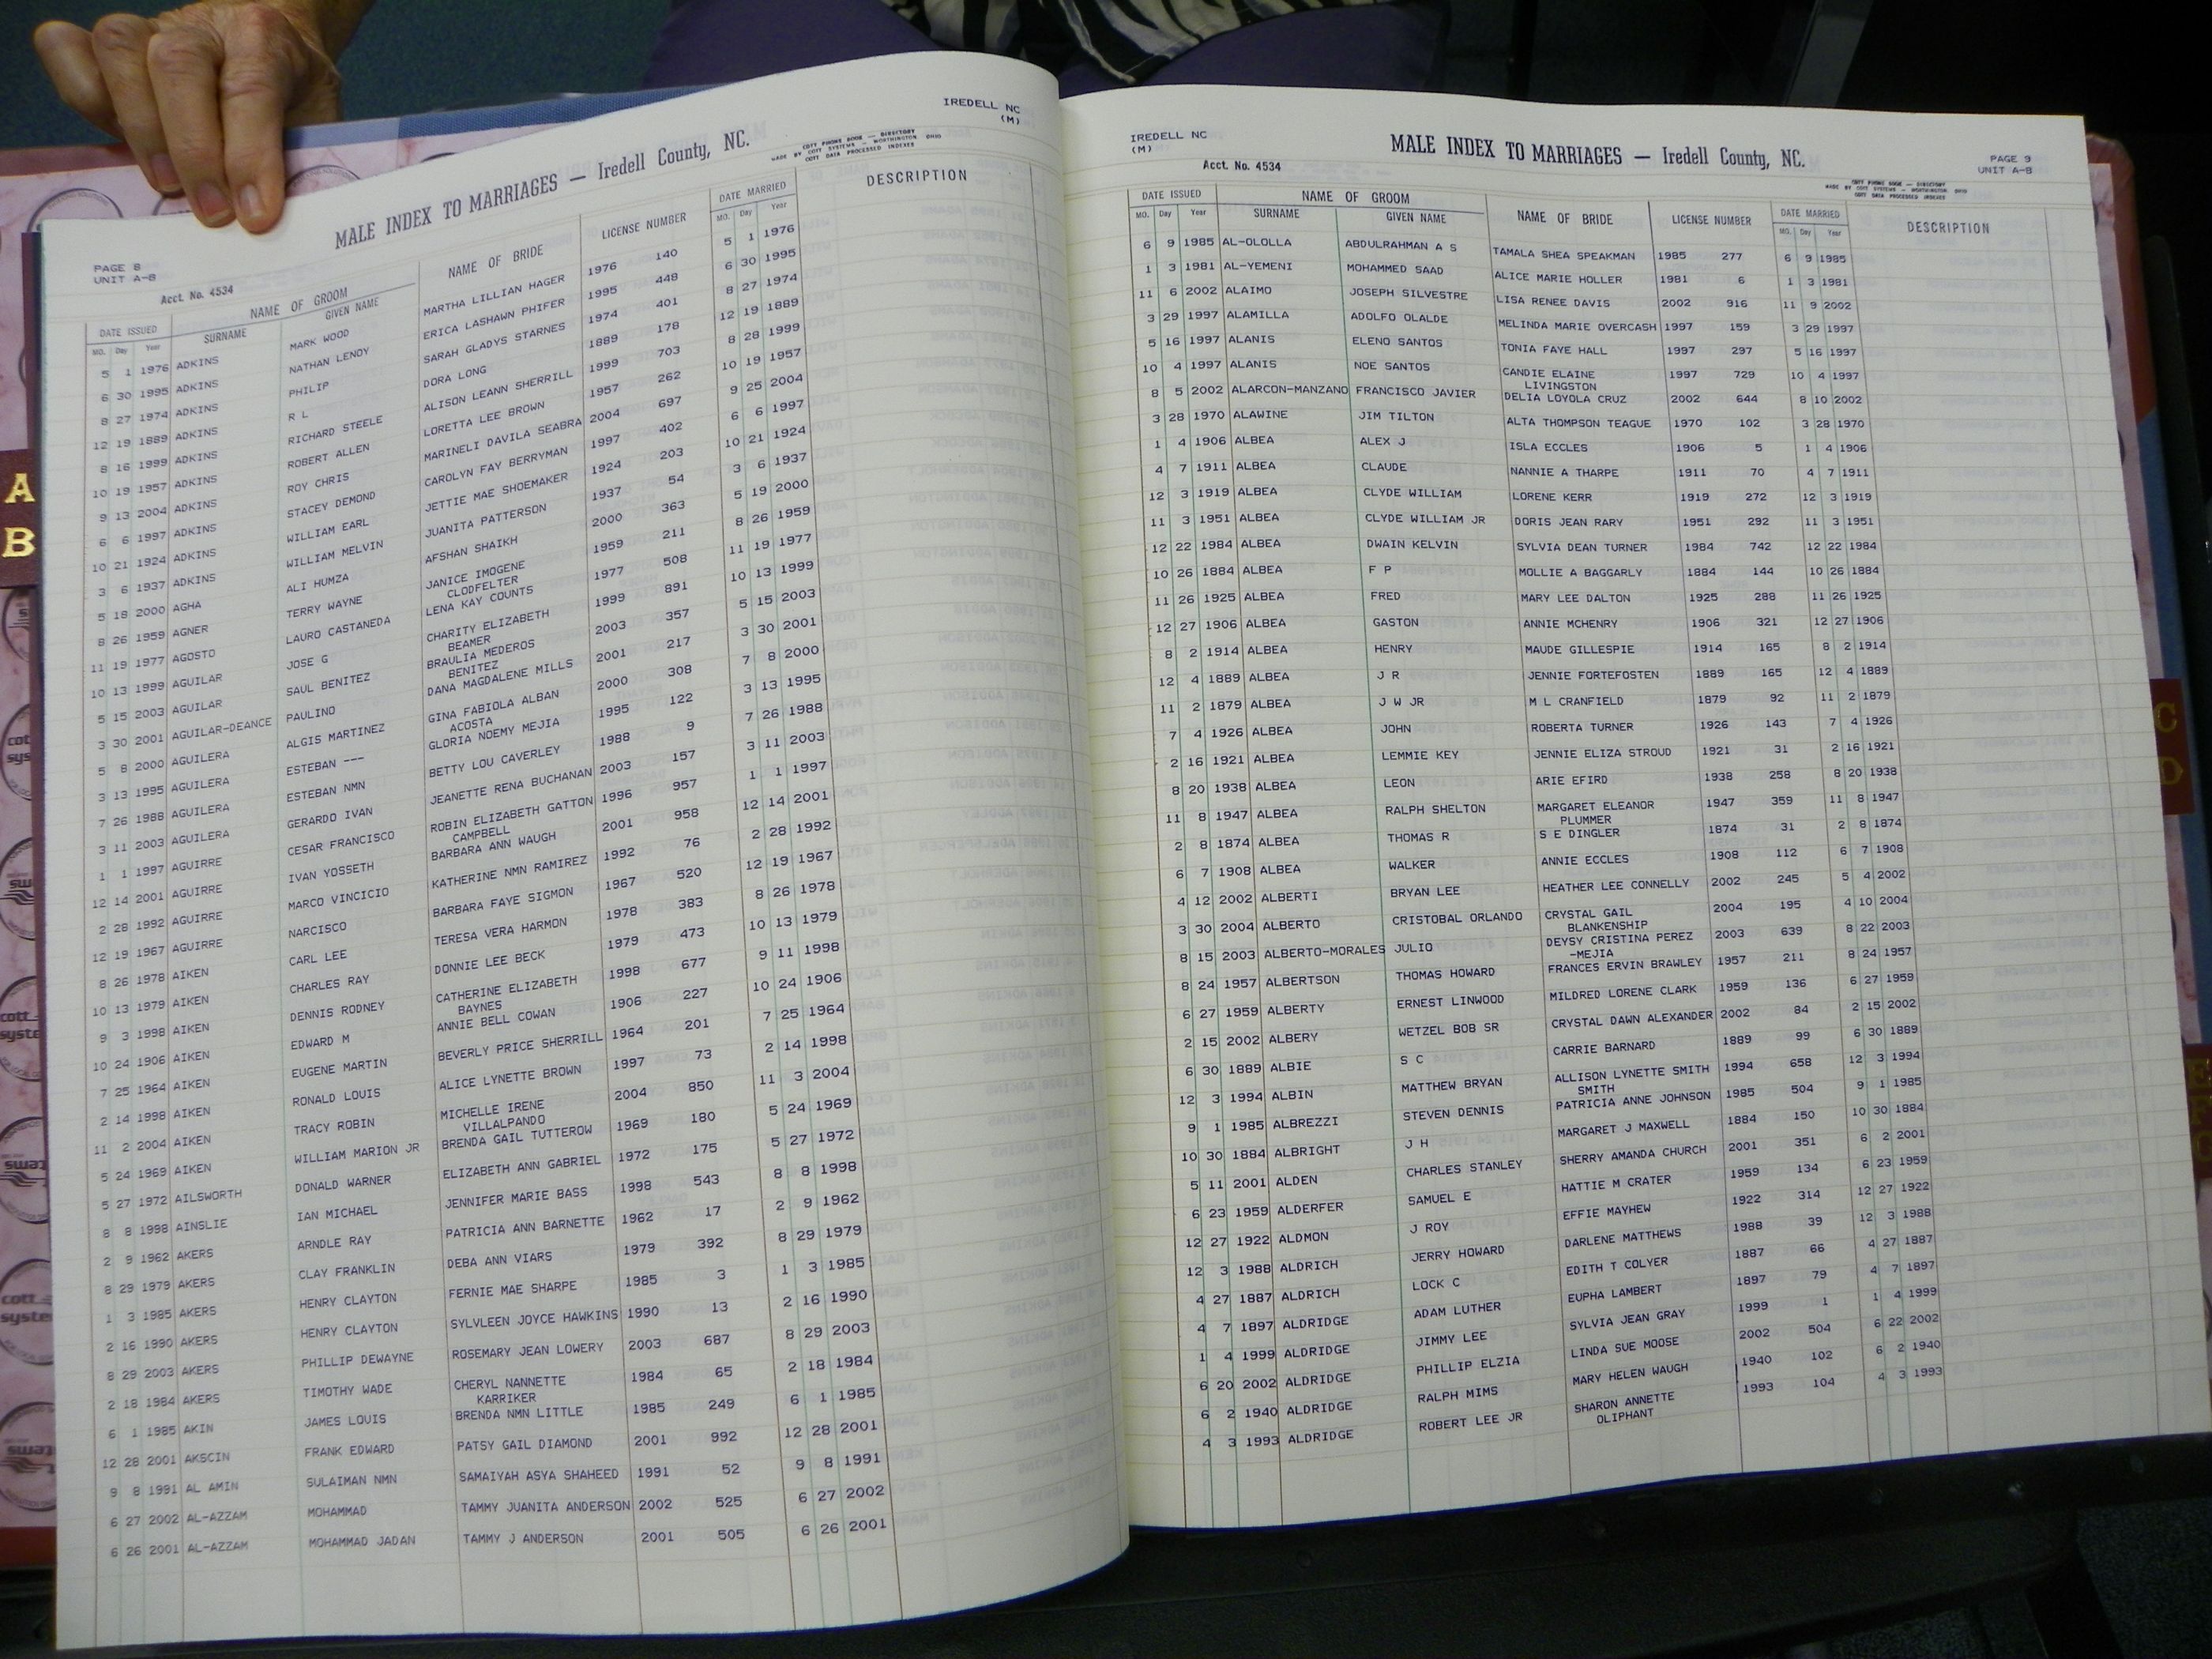 IREDELL NC
(M)
MALE INDEX TO MARRIAGES — Iredell County, NC.
COTT PHONO BOOK — DIRECTORY
MADE BY COTT SYSTEMS — WORTHINGTON OHIO
COTT DATA PROCESSED INDEXES
PAGE 8
UNIT A-B
Acct. No. 4534
DATE ISSUED NAME OF GROOM NAME OF BRIDE LICENSE NUMBER DATE MARRIED DESCRIPTION
MO. Day Year SURNAME GIVEN NAME MO. Day Year
5 1 1976 ADKINS MARK WOOD MARTHA LILLIAN HAGER 1976 140 5 1 1976
6 30 1995 ADKINS NATHAN LENOY ERICA LASHAWN PHIFER 1995 448 6 30 1995
8 27 1974 ADKINS PHILIP SARAH GLADYS STARNES 1974 401 8 27 1974
12 19 1889 ADKINS R L DORA LONG 1889 178 12 19 1889
8 16 1999 ADKINS RICHARD STEELE ALISON LEANN SHERRILL 1999 703 8 28 1999
10 19 1957 ADKINS ROBERT ALLEN LORETTA LEE BROWN 1957 262 10 19 1957
9 13 2004 ADKINS ROY CHRIS MARINELI DAVILA SEABRA 2004 697 9 25 2004
6 6 1997 ADKINS STACEY DEMOND CAROLYN FAY BERRYMAN 1997 402 6 6 1997
10 21 1924 ADKINS WILLIAM EARL JETTIE MAE SHOEMAKER 1924 203 10 21 1924
3 6 1937 ADKINS WILLIAM MELVIN JUANITA PATTERSON 1937 54 3 6 1937
5 18 2000 AGHA ALI HUMZA AFSHAN SHAIKH 2000 363 5 19 2000
8 26 1959 AGNER TERRY WAYNE JANICE IMOGENE 1959 211 8 26 1959
CLODFELTER
11 19 1977 AGOSTO LAURO CASTANEDA LENA KAY COUNTS 1977 508 11 19 1977
10 13 1999 AGUILAR JOSE G CHARITY ELIZABETH 1999 891 10 13 1999
BEAMER
5 15 2003 AGUILAR SAUL BENITEZ BRAULIA MEDEROS 2003 357 5 15 2003
BENITEZ
3 30 2001 AGUILAR-DEANCE PAULINO DANA MAGDALENE MILLS 2001 217 3 30 2001
5 8 2000 AGUILERA ALGIS MARTINEZ GINA FABIOLA ALBAN 2000 308 7 8 2000
ACOSTA
3 13 1995 AGUILERA ESTEBAN --- GLORIA NOEMY MEJIA 1995 122 3 13 1995
7 26 1988 AGUILERA ESTEBAN NMN BETTY LOU CAVERLEY 1988 9 7 26 1988
3 11 2003 AGUILERA GERARDO IVAN JEANETTE RENA BUCHANAN 2003 157 3 11 2003
1 1 1997 AGUIRRE CESAR FRANCISCO ROBIN ELIZABETH GATTON 1996 957 1 1 1997
CAMPBELL
12 14 2001 AGUIRRE IVAN YOSSETH BARBARA ANN WAUGH 2001 958 12 14 2001
2 28 1992 AGUIRRE MARCO VINCICIO KATHERINE NMN RAMIREZ 1992 76 2 28 1992
12 19 1967 AGUIRRE NARCISCO BARBARA FAYE SIGMON 1967 520 12 19 1967
8 26 1978 AIKEN CARL LEE TERESA VERA HARMON 1978 383 8 26 1978
10 13 1979 AIKEN CHARLES RAY DONNIE LEE BECK 1979 473 10 13 1979
9 3 1998 AIKEN DENNIS RODNEY CATHERINE ELIZABETH 1998 677 9 11 1998
BAYNES
10 24 1906 AIKEN EDWARD M ANNIE BELL COWAN 1906 227 10 24 1906
7 25 1964 AIKEN EUGENE MARTIN BEVERLY PRICE SHERRILL 1964 201 7 25 1964
2 14 1998 AIKEN RONALD LOUIS ALICE LYNETTE BROWN 1997 73 2 14 1998
11 2 2004 AIKEN TRACY ROBIN MICHELLE IRENE 2004 850 11 3 2004
VILLALPANDO
5 24 1969 AIKEN WILLIAM MARION JR BRENDA GAIL TUTTEROW 1969 180 5 24 1969
5 27 1972 AILSWORTH DONALD WARNER ELIZABETH ANN GABRIEL 1972 175 5 27 1972
8 8 1998 AINSLIE IAN MICHAEL JENNIFER MARIE BASS 1998 543 8 8 1998
2 9 1962 AKERS ARNDLE RAY PATRICIA ANN BARNETTE 1962 17 2 9 1962
8 29 1979 AKERS CLAY FRANKLIN DEBA ANN VIARS 1979 392 8 29 1979
1 3 1985 AKERS HENRY CLAYTON FERNIE MAE SHARPE 1985 3 1 3 1985
2 16 1990 AKERS HENRY CLAYTON SYLVLEEN JOYCE HAWKINS 1990 13 2 16 1990
8 29 2003 AKERS PHILLIP DEWAYNE ROSEMARY JEAN LOWERY 2003 687 8 29 2003
2 18 1984 AKERS TIMOTHY WADE CHERYL NANNETTE 1984 65 2 18 1984
KARRIKER
6 1 1985 AKIN JAMES LOUIS BRENDA NMN LITTLE 1985 249 6 1 1985
12 28 2001 AKSCIN FRANK EDWARD PATSY GAIL DIAMOND 2001 992 12 28 2001
9 8 1991 AL AMIN SULAIMAN NMN SAMAIYAH ASYA SHAHEED 1991 52 9 8 1991
6 27 2002 AL-AZZAM MOHAMMAD TAMMY JUANITA ANDERSON 2002 525 6 27 2002
6 26 2001 AL-AZZAM MOHAMMAD JADAN TAMMY J ANDERSON 2001 505 6 26 2001
IREDELL NC
(M)
Acct. No. 4534
MALE INDEX TO MARRIAGES — Iredell County, NC.
PAGE 9
UNIT A-B
COTT PHONO BOOK — DIRECTORY
MADE BY COTT SYSTEMS — WORTHINGTON OHIO
COTT DATA PROCESSED INDEXES
DATE ISSUED NAME OF GROOM NAME OF BRIDE LICENSE NUMBER DATE MARRIED DESCRIPTION
MO. Day Year SURNAME GIVEN NAME MO. Day Year
6 9 1985 AL-OLOLLA ABDULRAHMAN A S TAMALA SHEA SPEAKMAN 1985 277 6 9 1985
1 3 1981 AL-YEMENI MOHAMMED SAAD ALICE MARIE HOLLER 1981 6 1 3 1981
11 6 2002 ALAIMO JOSEPH SILVESTRE LISA RENEE DAVIS 2002 916 11 9 2002
3 29 1997 ALAMILLA ADOLFO OLALDE MELINDA MARIE OVERCASH 1997 159 3 29 1997
5 16 1997 ALANIS ELENO SANTOS TONIA FAYE HALL 1997 297 5 16 1997
10 4 1997 ALANIS NOE SANTOS CANDIE ELAINE 1997 729 10 4 1997
LIVINGSTON
8 5 2002 ALARCON-MANZANO FRANCISCO JAVIER DELIA LOYOLA CRUZ 2002 644 8 10 2002
3 28 1970 ALAWINE JIM TILTON ALTA THOMPSON TEAGUE 1970 102 3 28 1970
1 4 1906 ALBEA ALEX J ISLA ECCLES 1906 5 1 4 1906
4 7 1911 ALBEA CLAUDE NANNIE A THARPE 1911 70 4 7 1911
12 3 1919 ALBEA CLYDE WILLIAM LORENE KERR 1919 272 12 3 1919
11 3 1951 ALBEA CLYDE WILLIAM JR DORIS JEAN RARY 1951 292 11 3 1951
12 22 1984 ALBEA DWAIN KELVIN SYLVIA DEAN TURNER 1984 742 12 22 1984
10 26 1884 ALBEA F P MOLLIE A BAGGARLY 1884 144 10 26 1884
11 26 1925 ALBEA FRED MARY LEE DALTON 1925 288 11 26 1925
12 27 1906 ALBEA GASTON ANNIE MCHENRY 1906 321 12 27 1906
8 2 1914 ALBEA HENRY MAUDE GILLESPIE 1914 165 8 2 1914
12 4 1889 ALBEA J R JENNIE FORTEFOSTEN 1889 165 12 4 1889
11 2 1879 ALBEA J W JR M L CRANFIELD 1879 92 11 2 1879
7 4 1926 ALBEA JOHN ROBERTA TURNER 1926 143 7 4 1926
2 16 1921 ALBEA LEMMIE KEY JENNIE ELIZA STROUD 1921 31 2 16 1921
8 20 1938 ALBEA LEON ARIE EFIRD 1938 258 8 20 1938
11 8 1947 ALBEA RALPH SHELTON MARGARET ELEANOR 1947 359 11 8 1947
PLUMMER
2 8 1874 ALBEA THOMAS R S E DINGLER 1874 31 2 8 1874
6 7 1908 ALBEA WALKER ANNIE ECCLES 1908 112 6 7 1908
4 12 2002 ALBERTI BRYAN LEE HEATHER LEE CONNELLY 2002 245 5 4 2002
3 30 2004 ALBERTO CRISTOBAL ORLANDO CRYSTAL GAIL 2004 195 4 10 2004
BLANKENSHIP
8 15 2003 ALBERTO-MORALES JULIO DEYSY CRISTINA PEREZ 2003 639 8 22 2003
-MEJIA
8 24 1957 ALBERTSON THOMAS HOWARD FRANCES ERVIN BRAWLEY 1957 211 8 24 1957
6 27 1959 ALBERTY ERNEST LINWOOD MILDRED LORENE CLARK 1959 136 6 27 1959
2 15 2002 ALBERY WETZEL BOB SR CRYSTAL DAWN ALEXANDER 2002 84 2 15 2002
6 30 1889 ALBIE S C CARRIE BARNARD 1889 99 6 30 1889
12 3 1994 ALBIN MATTHEW BRYAN ALLISON LYNETTE SMITH 1994 658 12 3 1994
SMITH
9 1 1985 ALBREZZI STEVEN DENNIS PATRICIA ANNE JOHNSON 1985 504 9 1 1985
10 30 1884 ALBRIGHT J H MARGARET J MAXWELL 1884 150 10 30 1884
5 11 2001 ALDEN CHARLES STANLEY SHERRY AMANDA CHURCH 2001 351 6 2 2001
6 23 1959 ALDERFER SAMUEL E HATTIE M CRATER 1959 134 6 23 1959
12 27 1922 ALDMON J ROY EFFIE MAYHEW 1922 314 12 27 1922
12 3 1988 ALDRICH JERRY HOWARD DARLENE MATTHEWS 1988 39 12 3 1988
4 27 1887 ALDRICH LOCK C EDITH T COLYER 1887 66 4 27 1887
4 7 1897 ALDRIDGE ADAM LUTHER EUPHA LAMBERT 1897 79 4 7 1897
1 4 1999 ALDRIDGE JIMMY LEE SYLVIA JEAN GRAY 1999 1 1 4 1999
6 20 2002 ALDRIDGE PHILLIP ELZIA LINDA SUE MOOSE 2002 504 6 22 2002
6 2 1940 ALDRIDGE RALPH MIMS MARY HELEN WAUGH 1940 102 6 2 1940
4 3 1993 ALDRIDGE ROBERT LEE JR SHARON ANNETTE 1993 104 4 3 1993
OLIPHANT
A
B
C
D